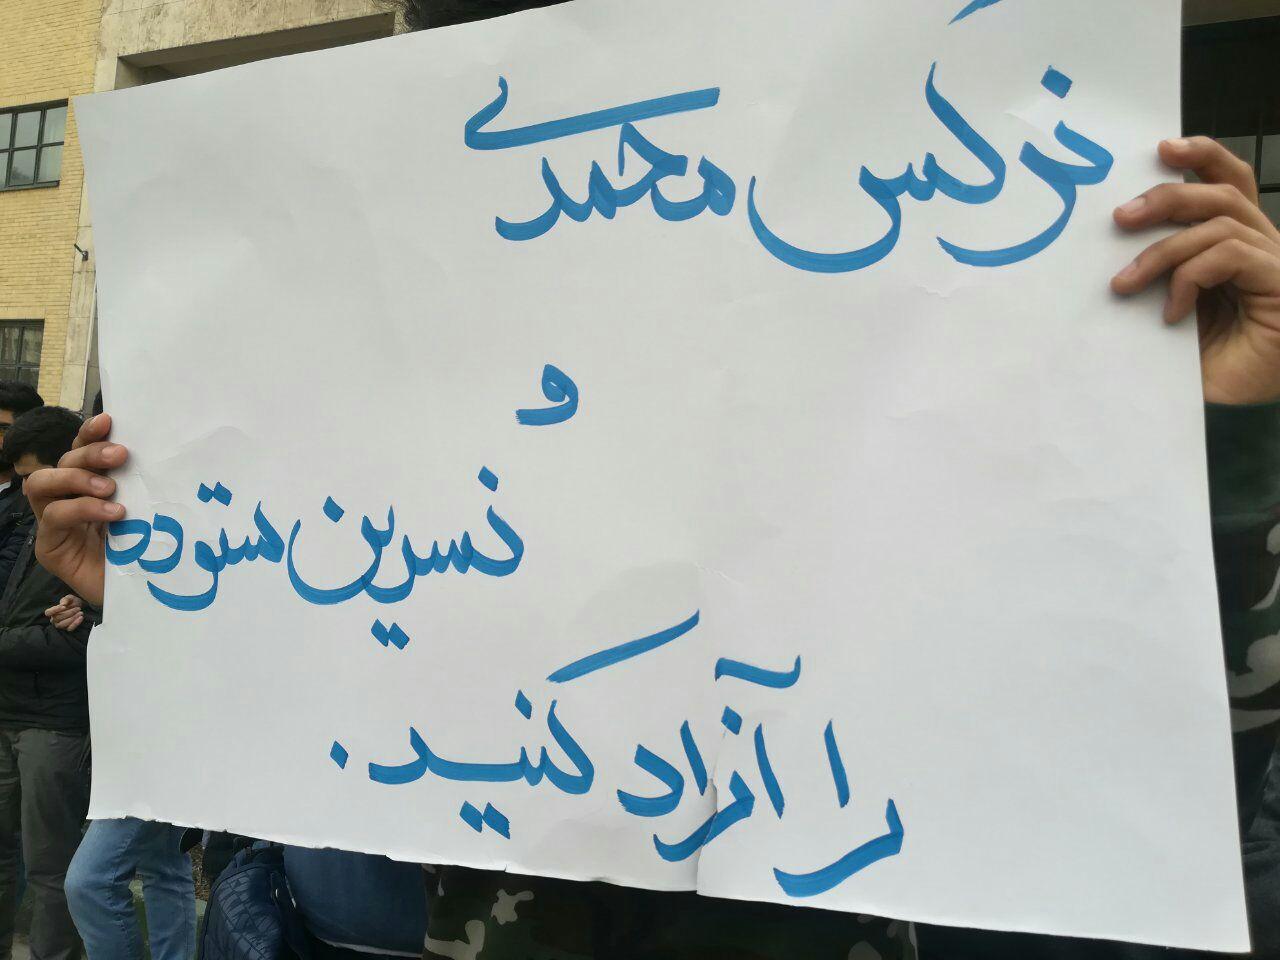 نرگس محمدی
و
نسرین ستوده
را آزاد کنید.